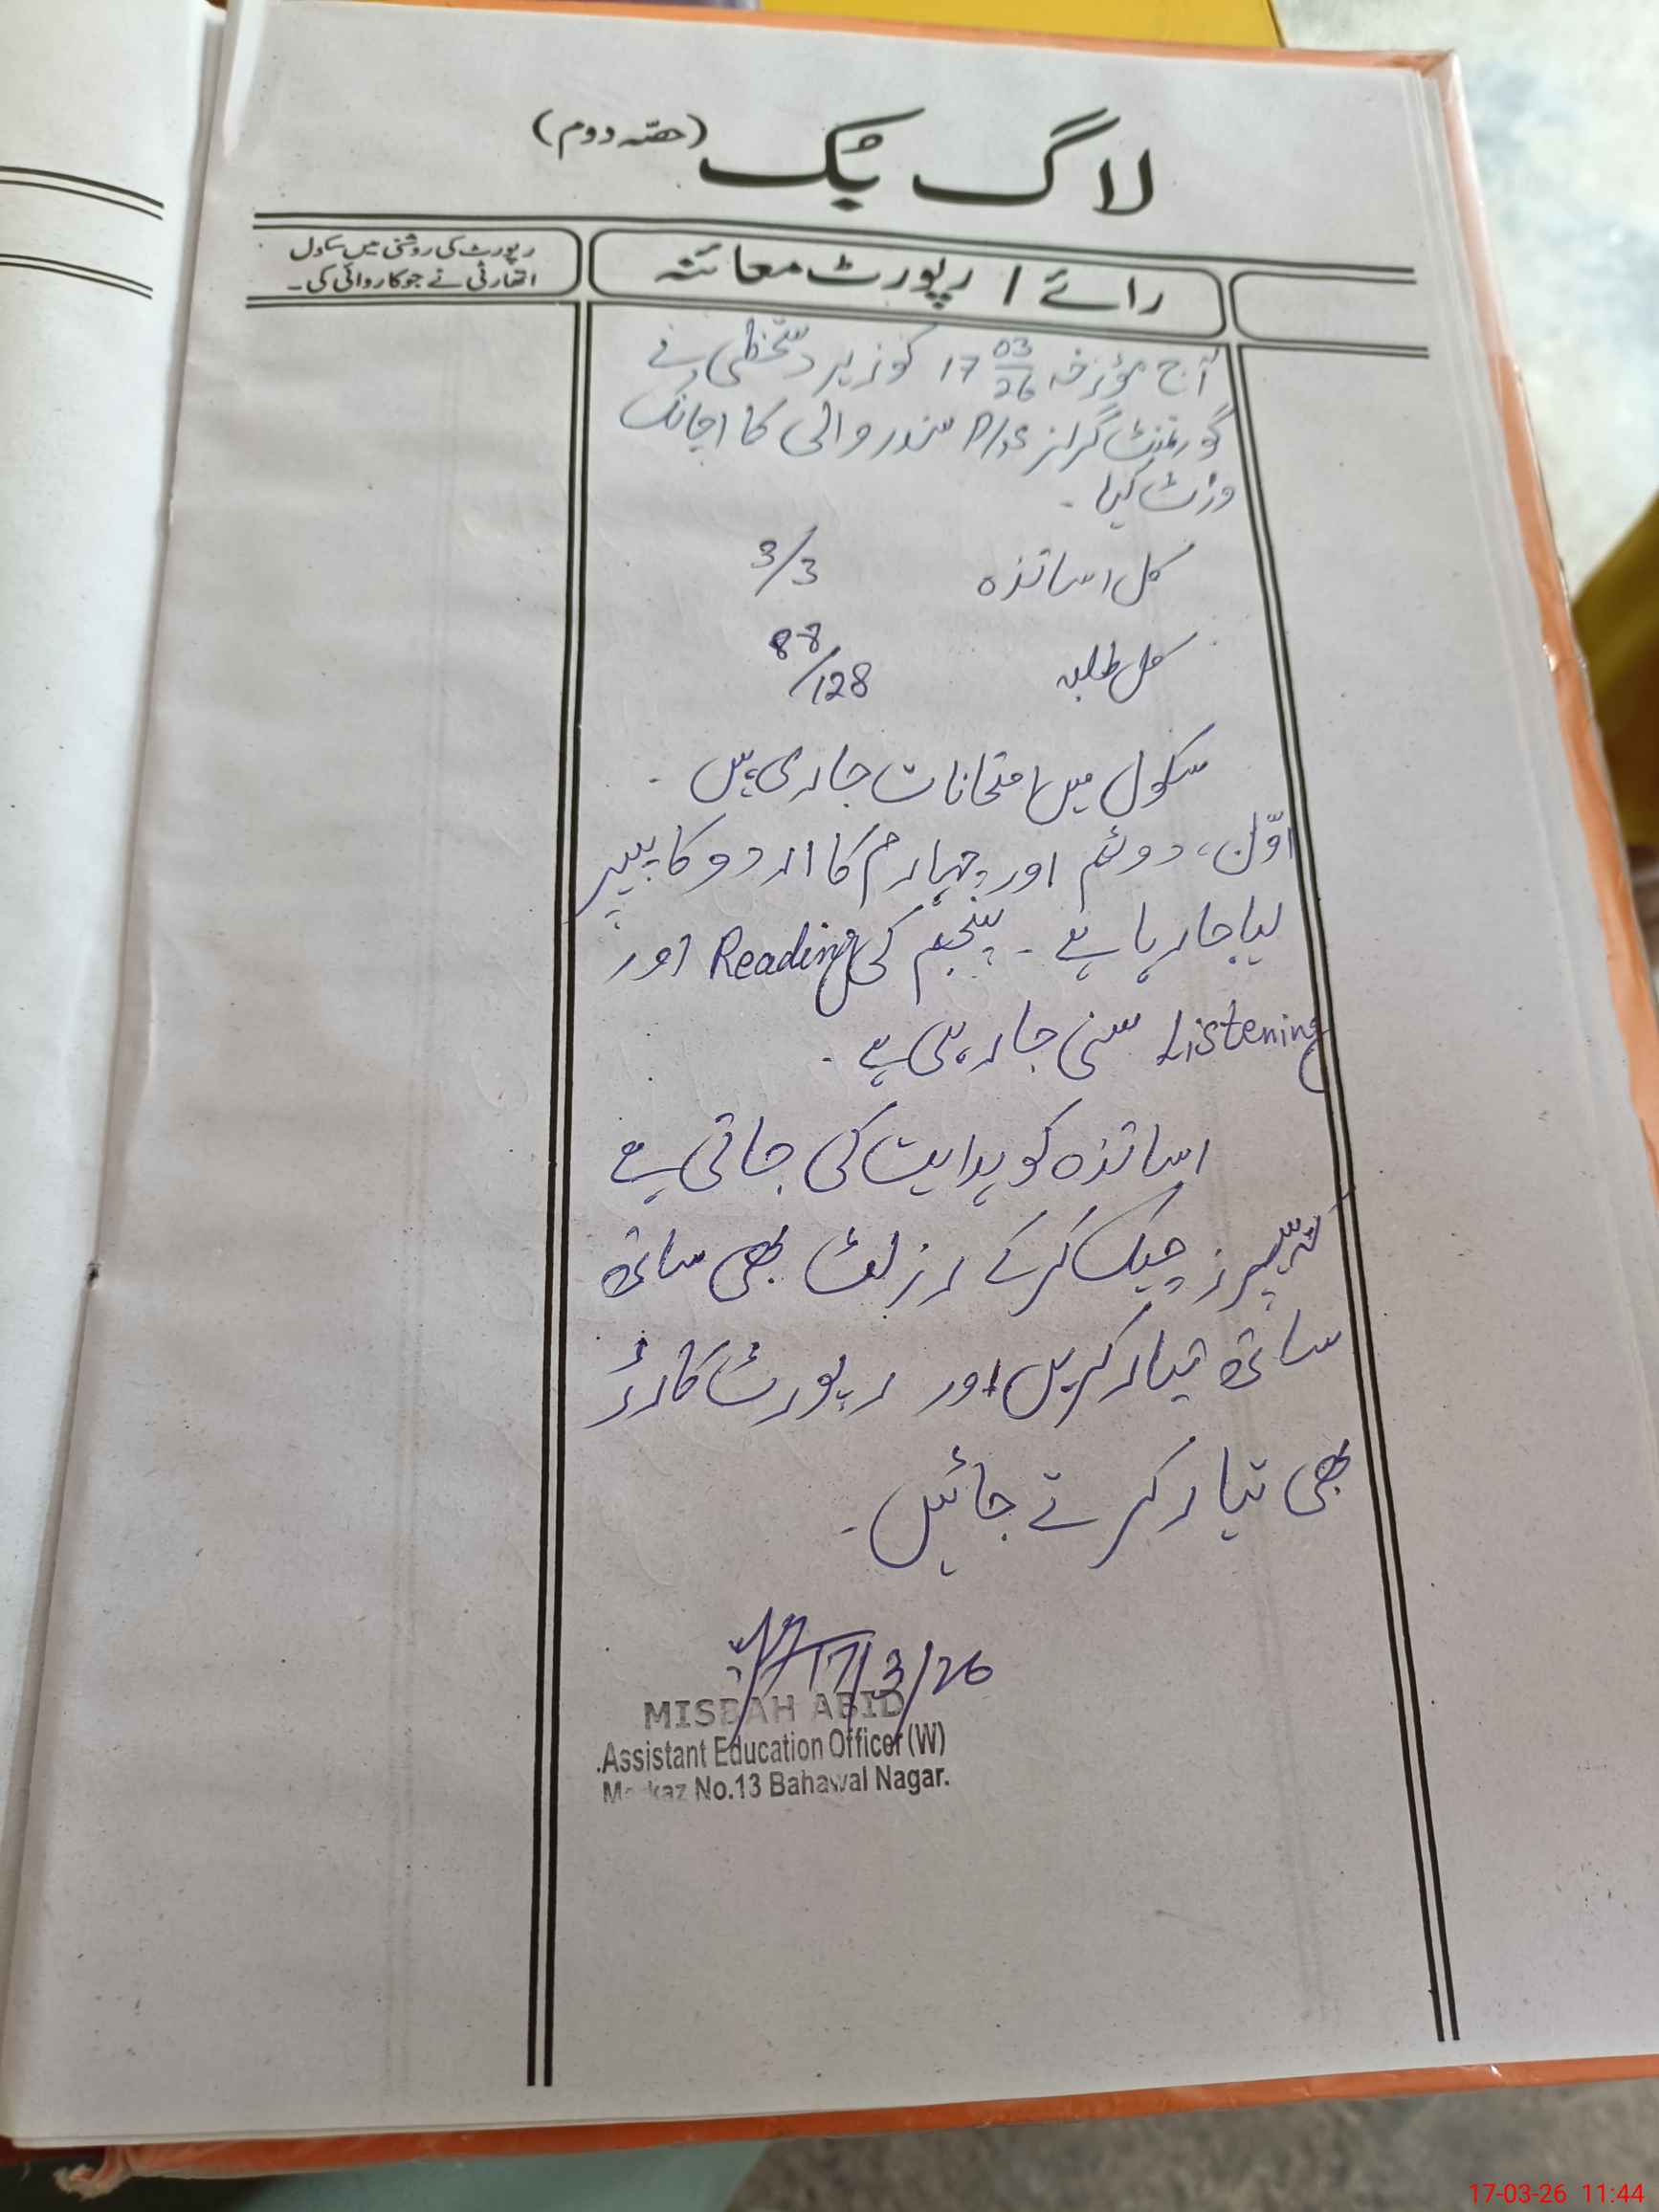 لاگ بُک (حصّہ دوم)
رائے / رپورٹ معائنہ
رپورٹ کی روشنی میں سکول
اتھارٹی نے جو کاروائی کی۔
آج مؤرخہ 17 03/26 کو زیر دستخطی نے
گورنمنٹ گرلز P/S سندر والی کا اچانک
وزٹ کیا۔
کل اساتذہ 3/3
کل طلبہ 88/128
سکول میں امتحانات جاری ہیں۔
اوّل، دوئم اور چہارم کا اردو کا پیپر
لیا جا رہا ہے۔ پنجم کی Reading اور
Listening سنی جا رہی ہے۔
اساتذہ کو ہدایت کی جاتی ہے
کہ پیپرز چیک کر کے رزلٹ بھی ساتھ
ساتھ تیار کریں اور رپورٹ کارڈ
بھی تیار کرتے جائیں۔
17/3/26
MISBAH ABID
Assistant Education Officer (W)
Markaz No.13 Bahawal Nagar.
17-03-26 11:44